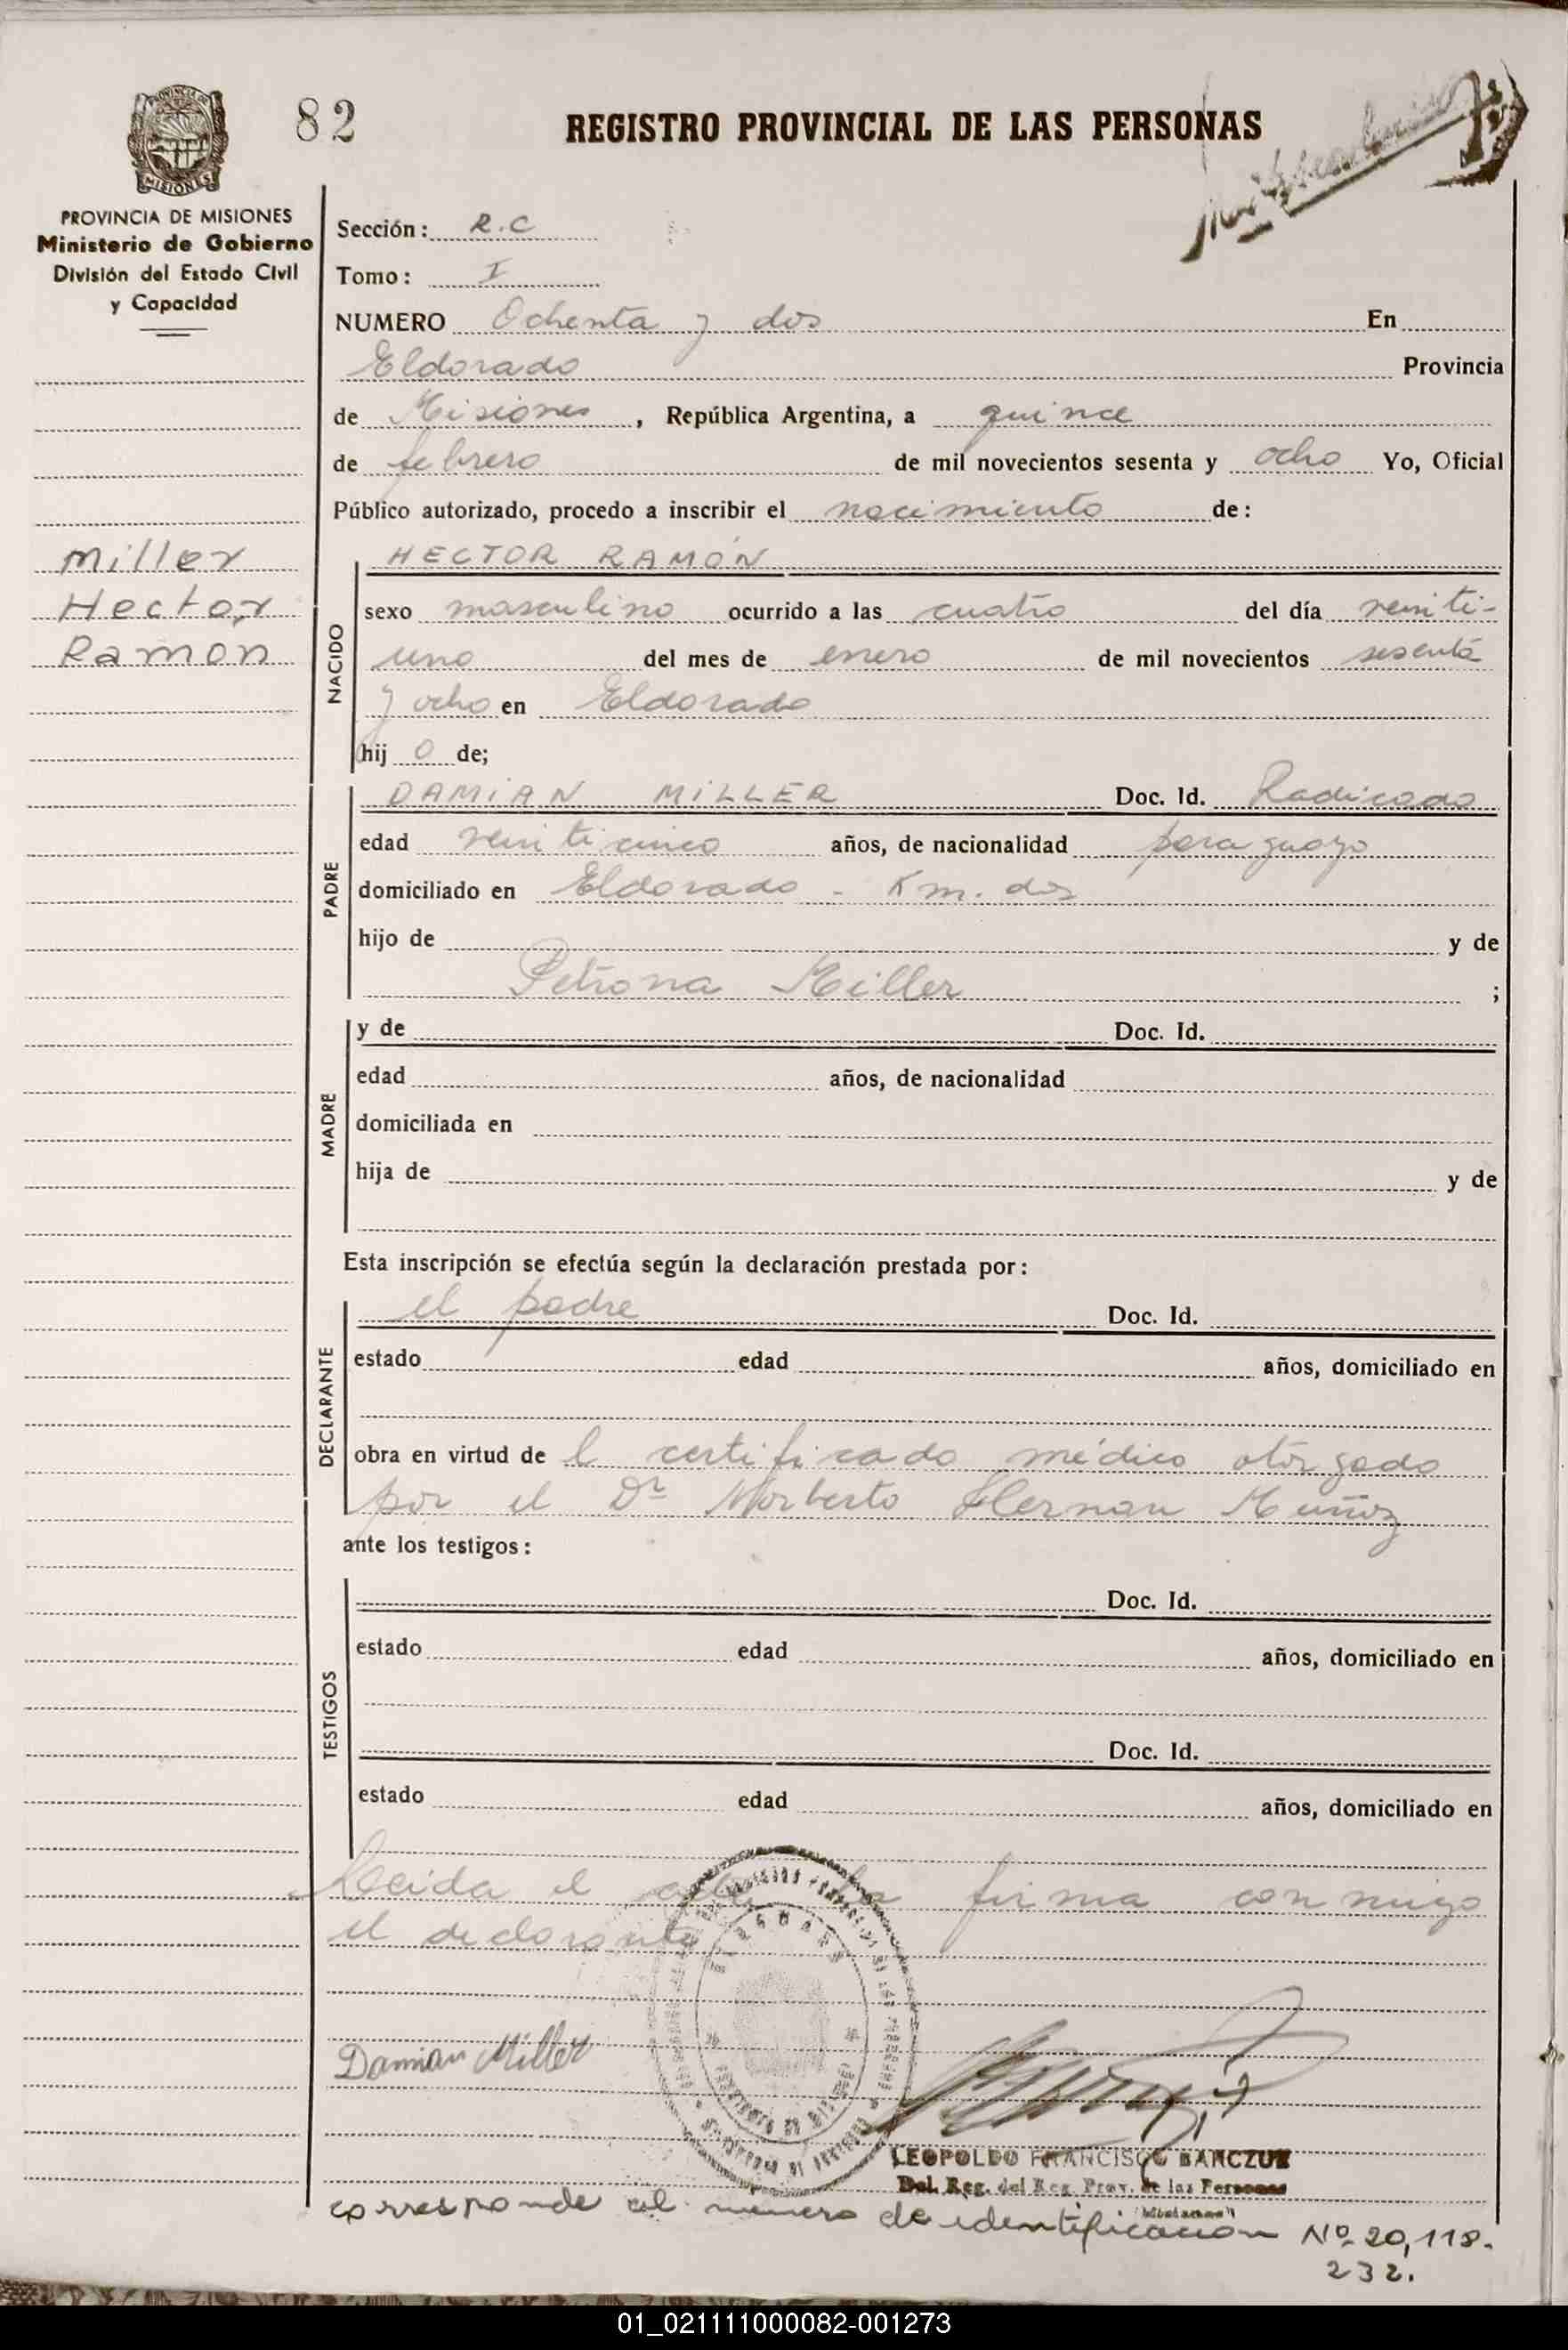 82
REGISTRO PROVINCIAL DE LAS PERSONAS
MISIONES
PROVINCIA DE MISIONES
Ministerio de Gobierno
División del Estado Civil
y Capacidad
Sección: R.C
Tomo: I
NUMERO Ochenta y dos En
Eldorado Provincia
de Misiones, República Argentina, a quince
de febrero de mil novecientos sesenta y ocho Yo, Oficial
Público autorizado, procedo a inscribir el nacimiento de:
Miller
Hector
Ramón
NACIDO
HECTOR RAMÓN
sexo masculino ocurrido a las cuatro del día veinti-
uno del mes de enero de mil novecientos sesenta
y ocho en Eldorado
hij o de;
PADRE
DAMIAN MILLER Doc. Id. Radicado
edad veinticinco años, de nacionalidad paraguayo
domiciliado en Eldorado - Km. dos
hijo de y de
Petrona Miller ;
MADRE
y de Doc. Id.
edad años, de nacionalidad
domiciliada en
hija de y de
Esta inscripción se efectúa según la declaración prestada por:
DECLARANTE
el padre Doc. Id.
estado edad años, domiciliado en
obra en virtud de l certificado médico otorgado
por el Dr Norberto Hernan Muñoz
ante los testigos:
TESTIGOS
Doc. Id.
estado edad años, domiciliado en
Doc. Id.
estado edad años, domiciliado en
Leida el acta la firma conmigo
el declarante
Damian Miller
LEOPOLDO FRANCISCO BANCZUK
Del. Reg. del Reg. Prov. de las Personas
corresponde al numero de identificacion Nº 20,118.
232.
01_021111000082-001273